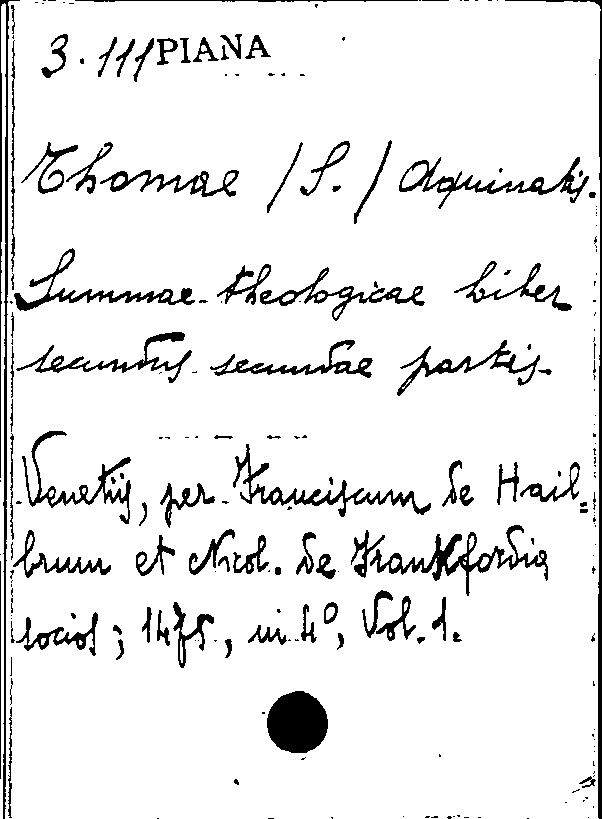 3. 111 PIANA
Thomae (S.) Aquinatis.
Summae theologicae liber
secundus secundae partis.
Venetiis, per Franciscum de Hail=
brun et Nicol. de Frankfordia
socios; 1475, in 4º, Vol. 1.